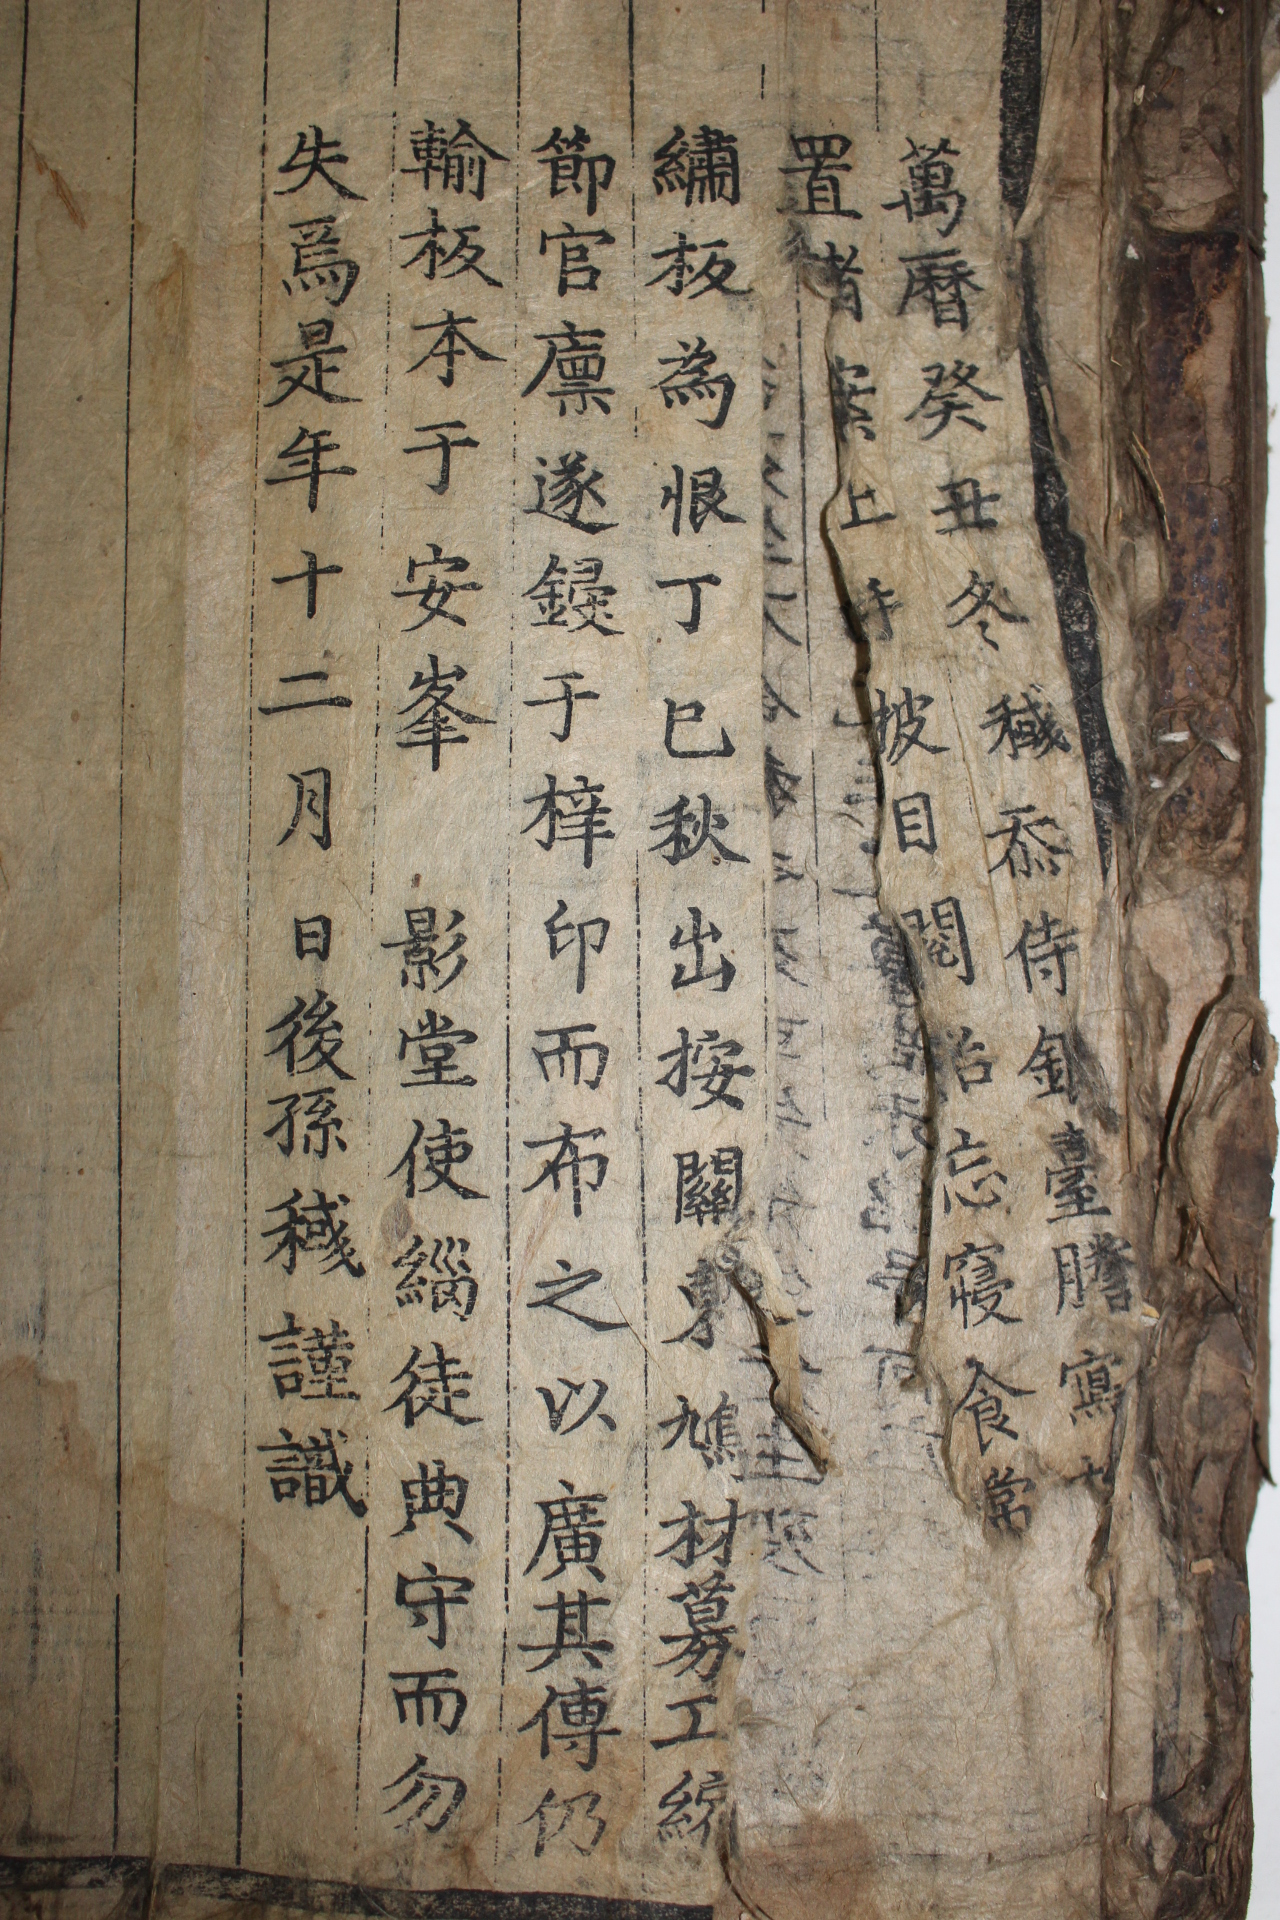 萬曆癸丑冬稶忝侍銀臺謄寫
置諸案上時披目閱殆忘寢食常
繡板為恨丁巳秋出按關東鳩材募工綂
節官廪遂鋟于梓印而布之以廣其傳仍
輸板本于安峯 影堂使緇徒典守而勿
失爲是年十二月 日後孫稶謹識